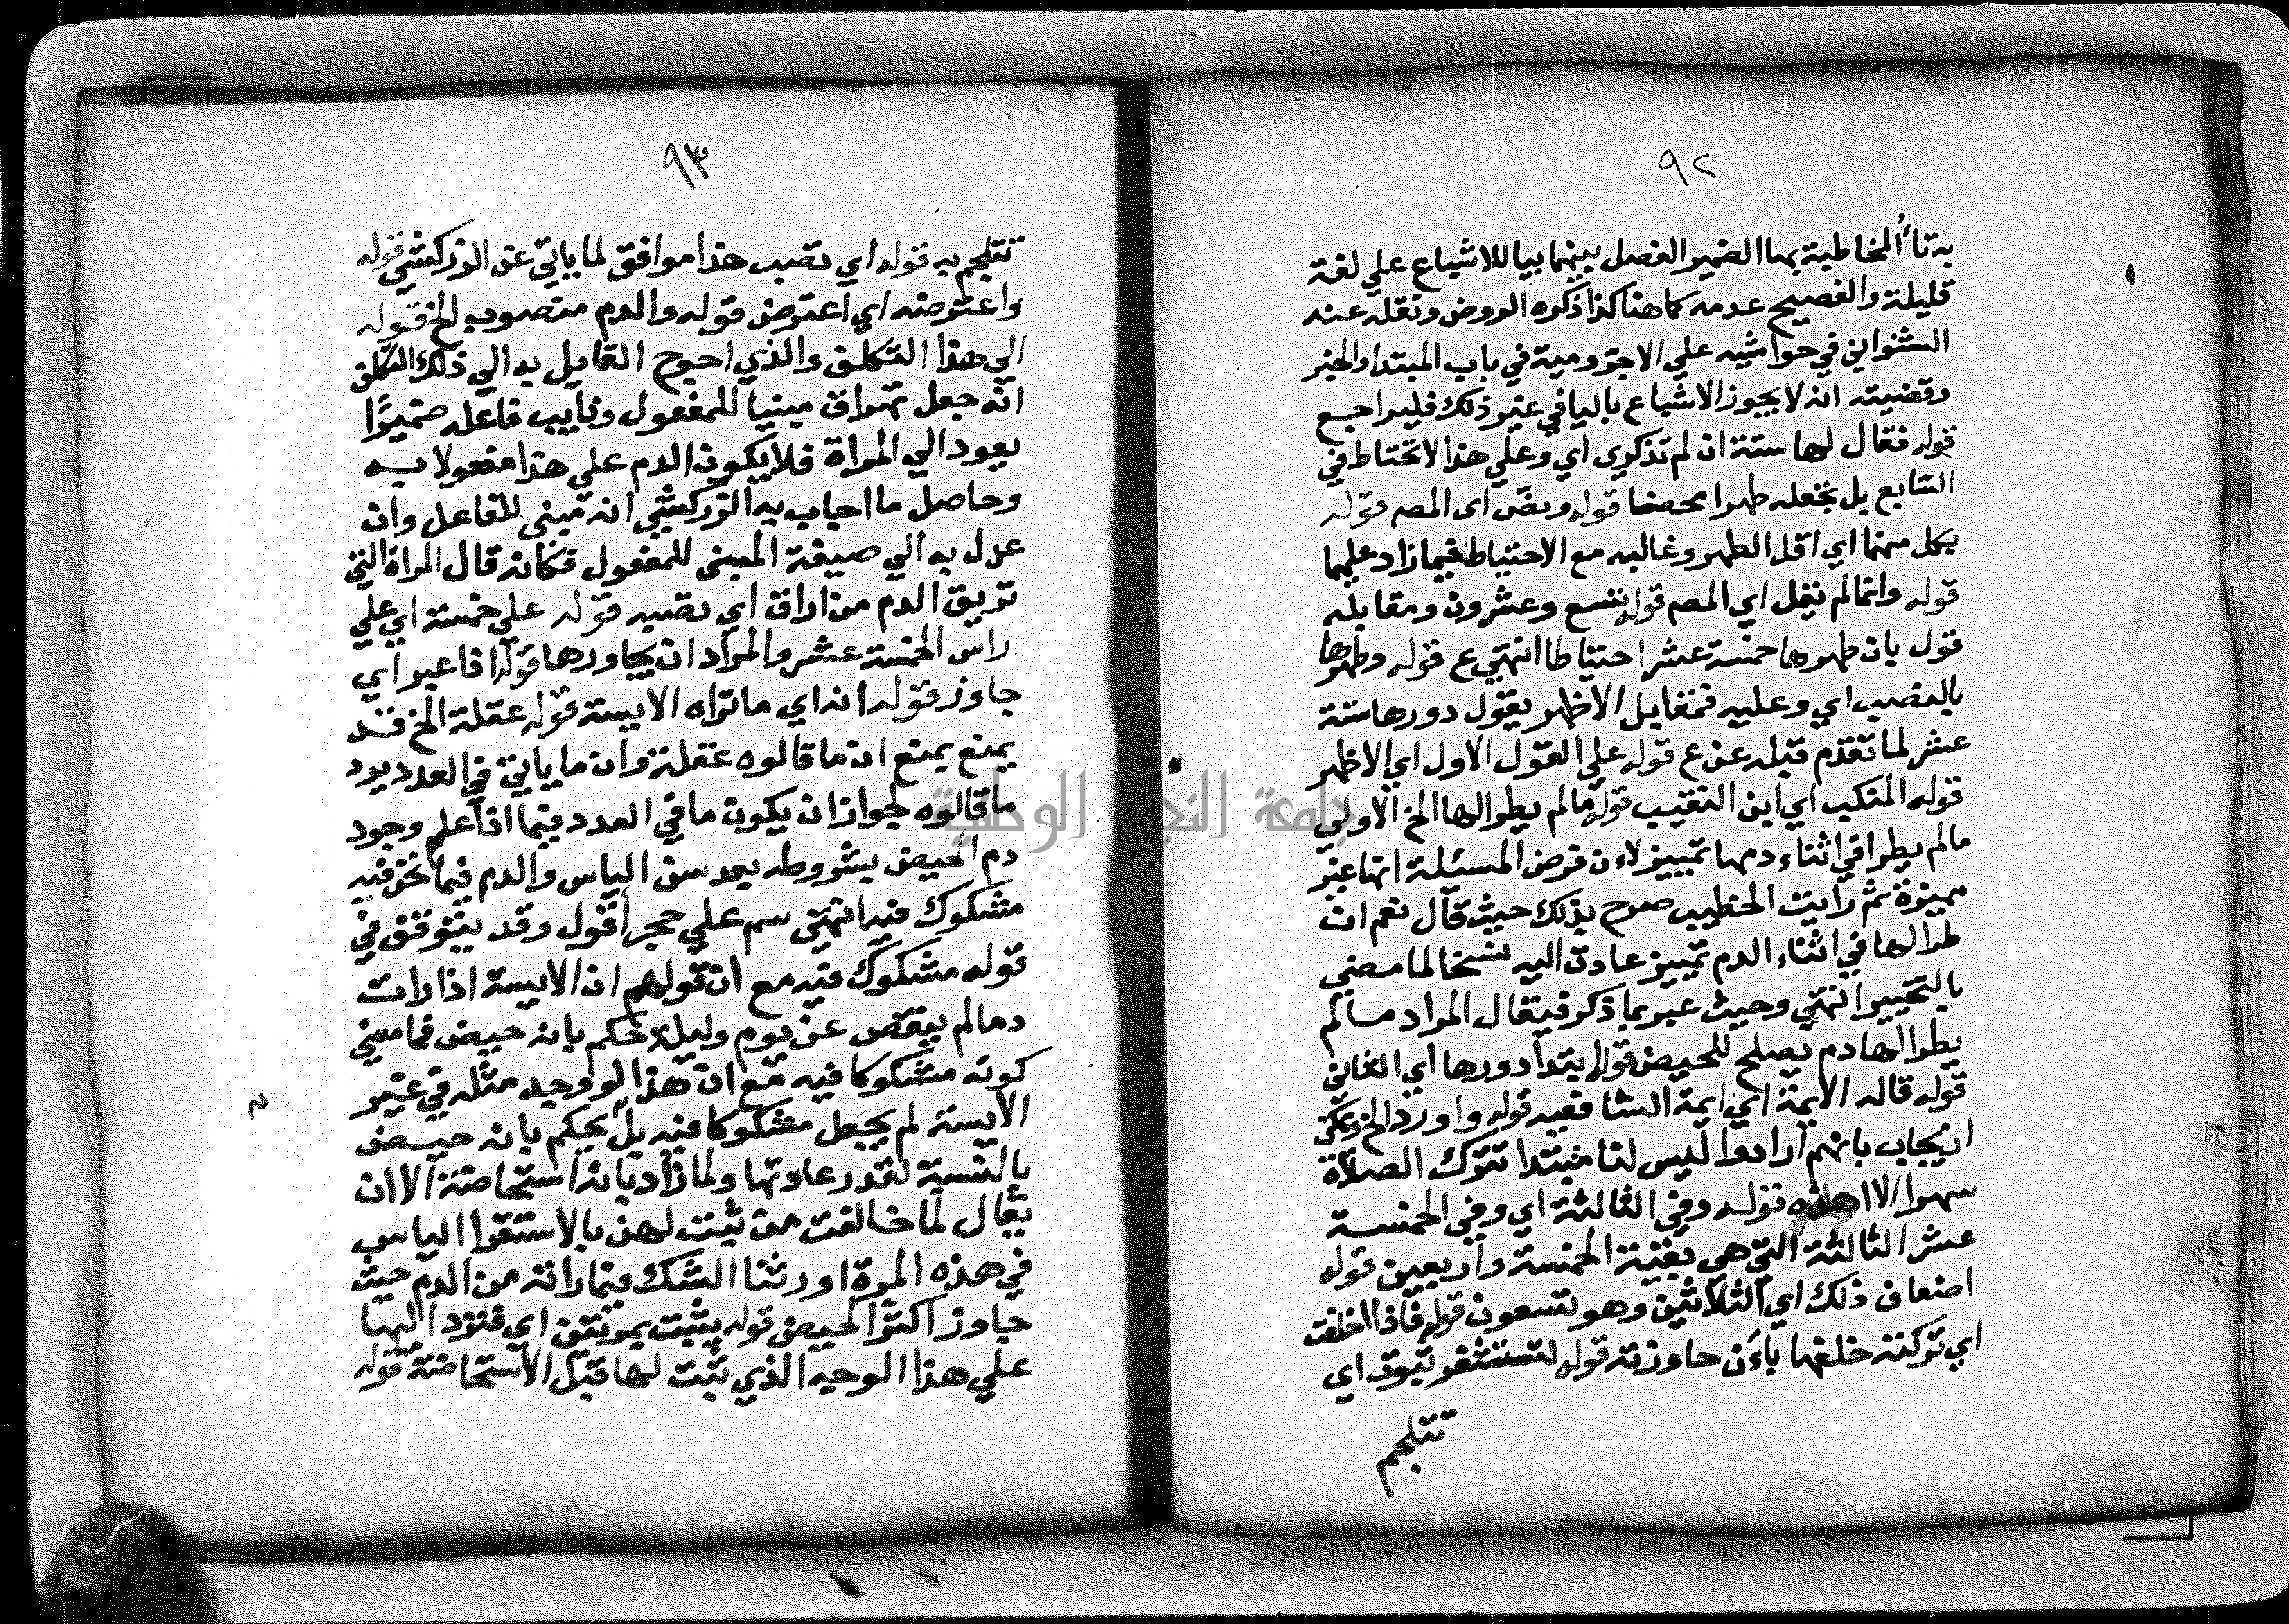 ٩٢
به تاء المخاطبة بها الضمير الفصل بينهما بيا للاشباع علي لغة
قليلة والفصيح عدمه كما هنا كذا ذكره الروض ونقله عنه
الشنواني في حواشيه علي الاجرومية في باب المبتدا والخبر
وقضيته انه لا يجوز الاشباع باليا في غير ذلك فليراجع
قوله فقال لها ستة ان لم تذكري اي وعلي هذا لا تحتاط في
التابع بل تجعله طهرا محضا قوله ونص اى المص قوله
يكمل منهما اي اقل الطهر وغالبه مع الاحتياط فيما زاد عليهما
قوله وانما لم نقل اي المص قوله تسع وعشرون ومقابله
قول بان طهرها خمسة عشر احتياطا انتهي ع قوله وطهرها
بالنصب اي وعليه فمقابل الاظهر يقول دورها ستة
عشر لما تقدم قبله عن ع قوله علي القول الاول اي الاظهر
قوله المنكب اي ابن النقيب قوله مالم يطرا لها الخ الاولي
مالم يطرا في اثناء دمها تمييز لاءن فرض المسئلة انها غير
مميزة ثم رايت الخطيب صرح بذلك حيث قال نعم ان
طرا لها في اثناء الدم تمييز عادت اليه نسخا لما مضي
بالتمييز انتهي وحيث عبر بما ذكر فيقال المراد مالم
يطرا لها دم يصلح للحيض قوله ابتدا دورها اي الثاني
قوله قاله الايمة اي ايمة الشافعيه قوله واورد الخ ويمكن
ان يجاب بانهم ارادوا ليس لنا مبتدا تترك الصلاة
سهرا الا هذه قوله وفي الثالثة اي وفي الخمسة
عشر الثالثة التي هي بقية الخمسة واربعين قوله
اضعاف ذلك اي الثلاثين وهو تسعون قوله فاذا خلفت
اي تركته خلفها باءن جاوزته قوله لتستثفر بثوب اي
تتلجم
٩٣
تتلجم به قوله اي نصب هذا موافق لما ياتي عن الزركشي قوله
واعترضه اي اعترض قوله والدم منصوب الخ قوله
الي هذا التكلف والذي احوج القايل به الي ذلك التكلف
انه جعل تهراق مبنيا للمفعول ونايب فاعله ضميرًا
يعود الي المراة فلا يكون الدم علي هذا مفعولا به
وحاصل ما اجاب به الزركشي انه مبني للفاعل وان
عدل به الي صيغة المبنى للمفعول فكانه قال المراة التي
تريق الدم من اراق اي تصبه قوله علي خمسة اي علي
راس الخمسة عشر والمراد ان يجاورها قوله اذا عبر اي
جاوز قوله انه اي ما تراه الايسة قوله غفلة الخ قد
يمنع يمنع ان ما قالوه غفلة وان ما ياتي في العدد يرد
ما قالوه لجواز ان يكون ما في العدد فيما اذا علم وجود
دم الحيض بشروطه بعد سن الياس والدم فيما نحن فيه
مشكوك فيه انتهي سم علي حجر اقول وقد يتوقف في
قوله مشكوك فيه مع ان قولهم ان الايسة اذا رات
دما لم ينقص عن يوم وليلة حكم بانه حيض فما معني
كونه مشكوكا فيه مع ان هذا لو وجد مثله في غير
الايسة لم يجعل مشكوكا فيه بل يحكم بانه حيض
بالنسبة لقدر عادتها ولما زاد بانه استحاضة الا ان
يقال لما خالفت من ثبت لهن بالاستقرا الياس
في هذه المرة اورثنا الشك فيما راته من الدم حيث
جاوز اكثر الحيض قوله يثبت بمرتين اي فترد اليها
علي هذا الوجه الذي ثبت لها قبل الاستحاضة قوله
جامعة النجاح الوطنية